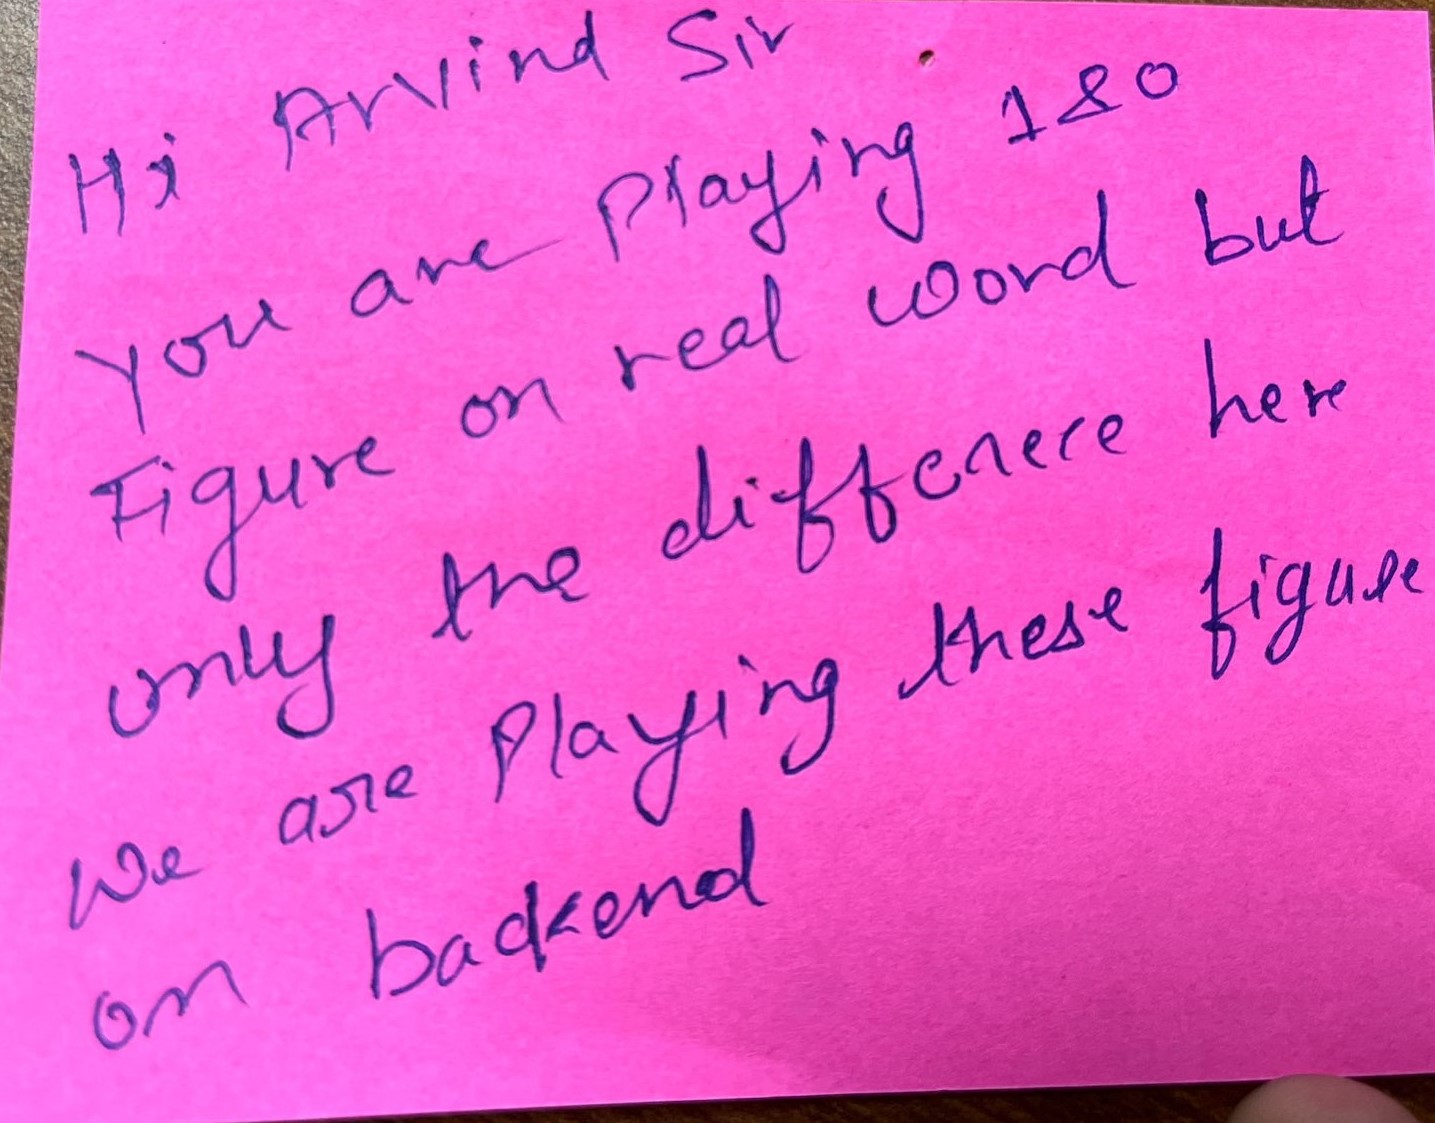 Hi Arvind Sir
You are Playing 180
Figure on real word but
only the differece here
We are Playing these figure
on backend